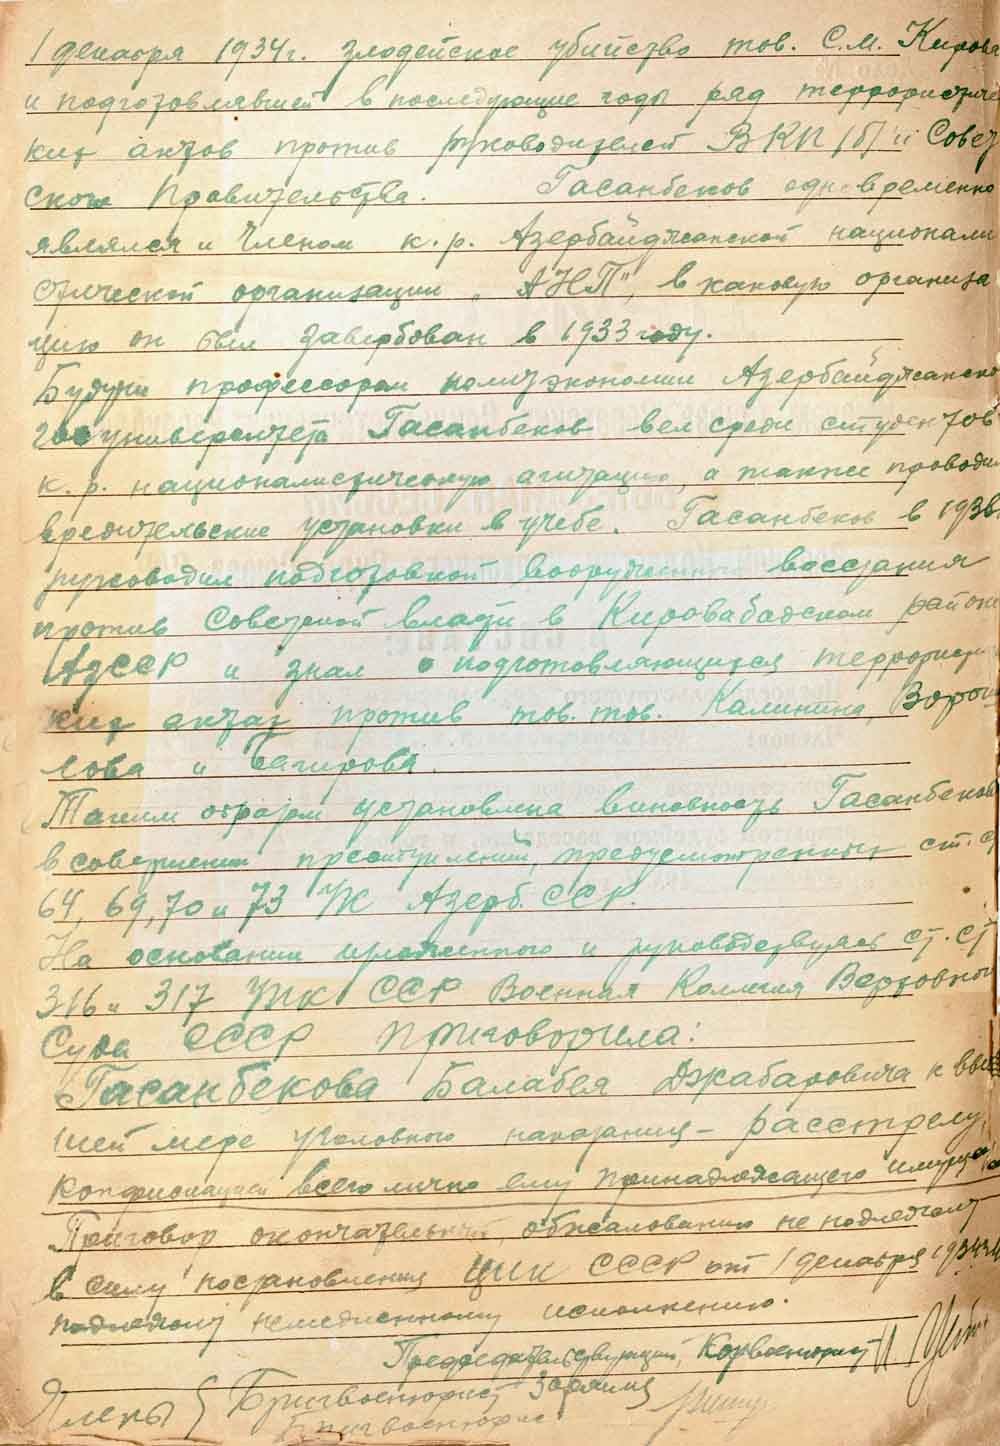 1 декабря 1934 г. злодейское убийство тов. С.М. Кирова
и подготовлявшей в последующие годы ряд террористиче
ких актов против руководителей ВКП/б/ и Совет
ского Правительства. Гасанбеков одновременно
являлся и членом к.р. Азербайджанской национали
стической организации „АНП", в каковую организа
цию он был завербован в 1933 году.
Будучи профессором политэкономии Азербайджанско
госуниверситета Гасанбеков вел среди студентов
к.р. националистическую агитацию, а также проводил
вредительские установки в учебе. Гасанбеков в 1936
руководил подготовкой вооруженного восстания
против Советской власти в Кировабадском районе
АзССР и знал о подготовляющихся террорист
ких актах против тов. тов. Калинина, Вороши
лова и Багирова.
Таким образом установлена виновность Гасанбекова
в совершении преступлений, предусмотренных ст. с
64, 69, 70 и 73 УК Азерб. ССР.
На основании изложенного и руководствуясь ст. ст
316 и 317 УПК ССР Военная Коллегия Верховного
Суда СССР приговорила:
Гасанбекова Балабея Джабаровича к выс
шей мере уголовного наказания – расстрелу,
конфискацией всего лично ему принадлежащего имущ
Приговор окончательный, обжалованию не подлежит
в силу постановления ЦИК СССР от 1 декабря 1934
подлежит немедленному исполнению.
Председательствующий, Корвоенюрист
Члены { Бригвоенюрист Зарянов
Бригвоенюрист